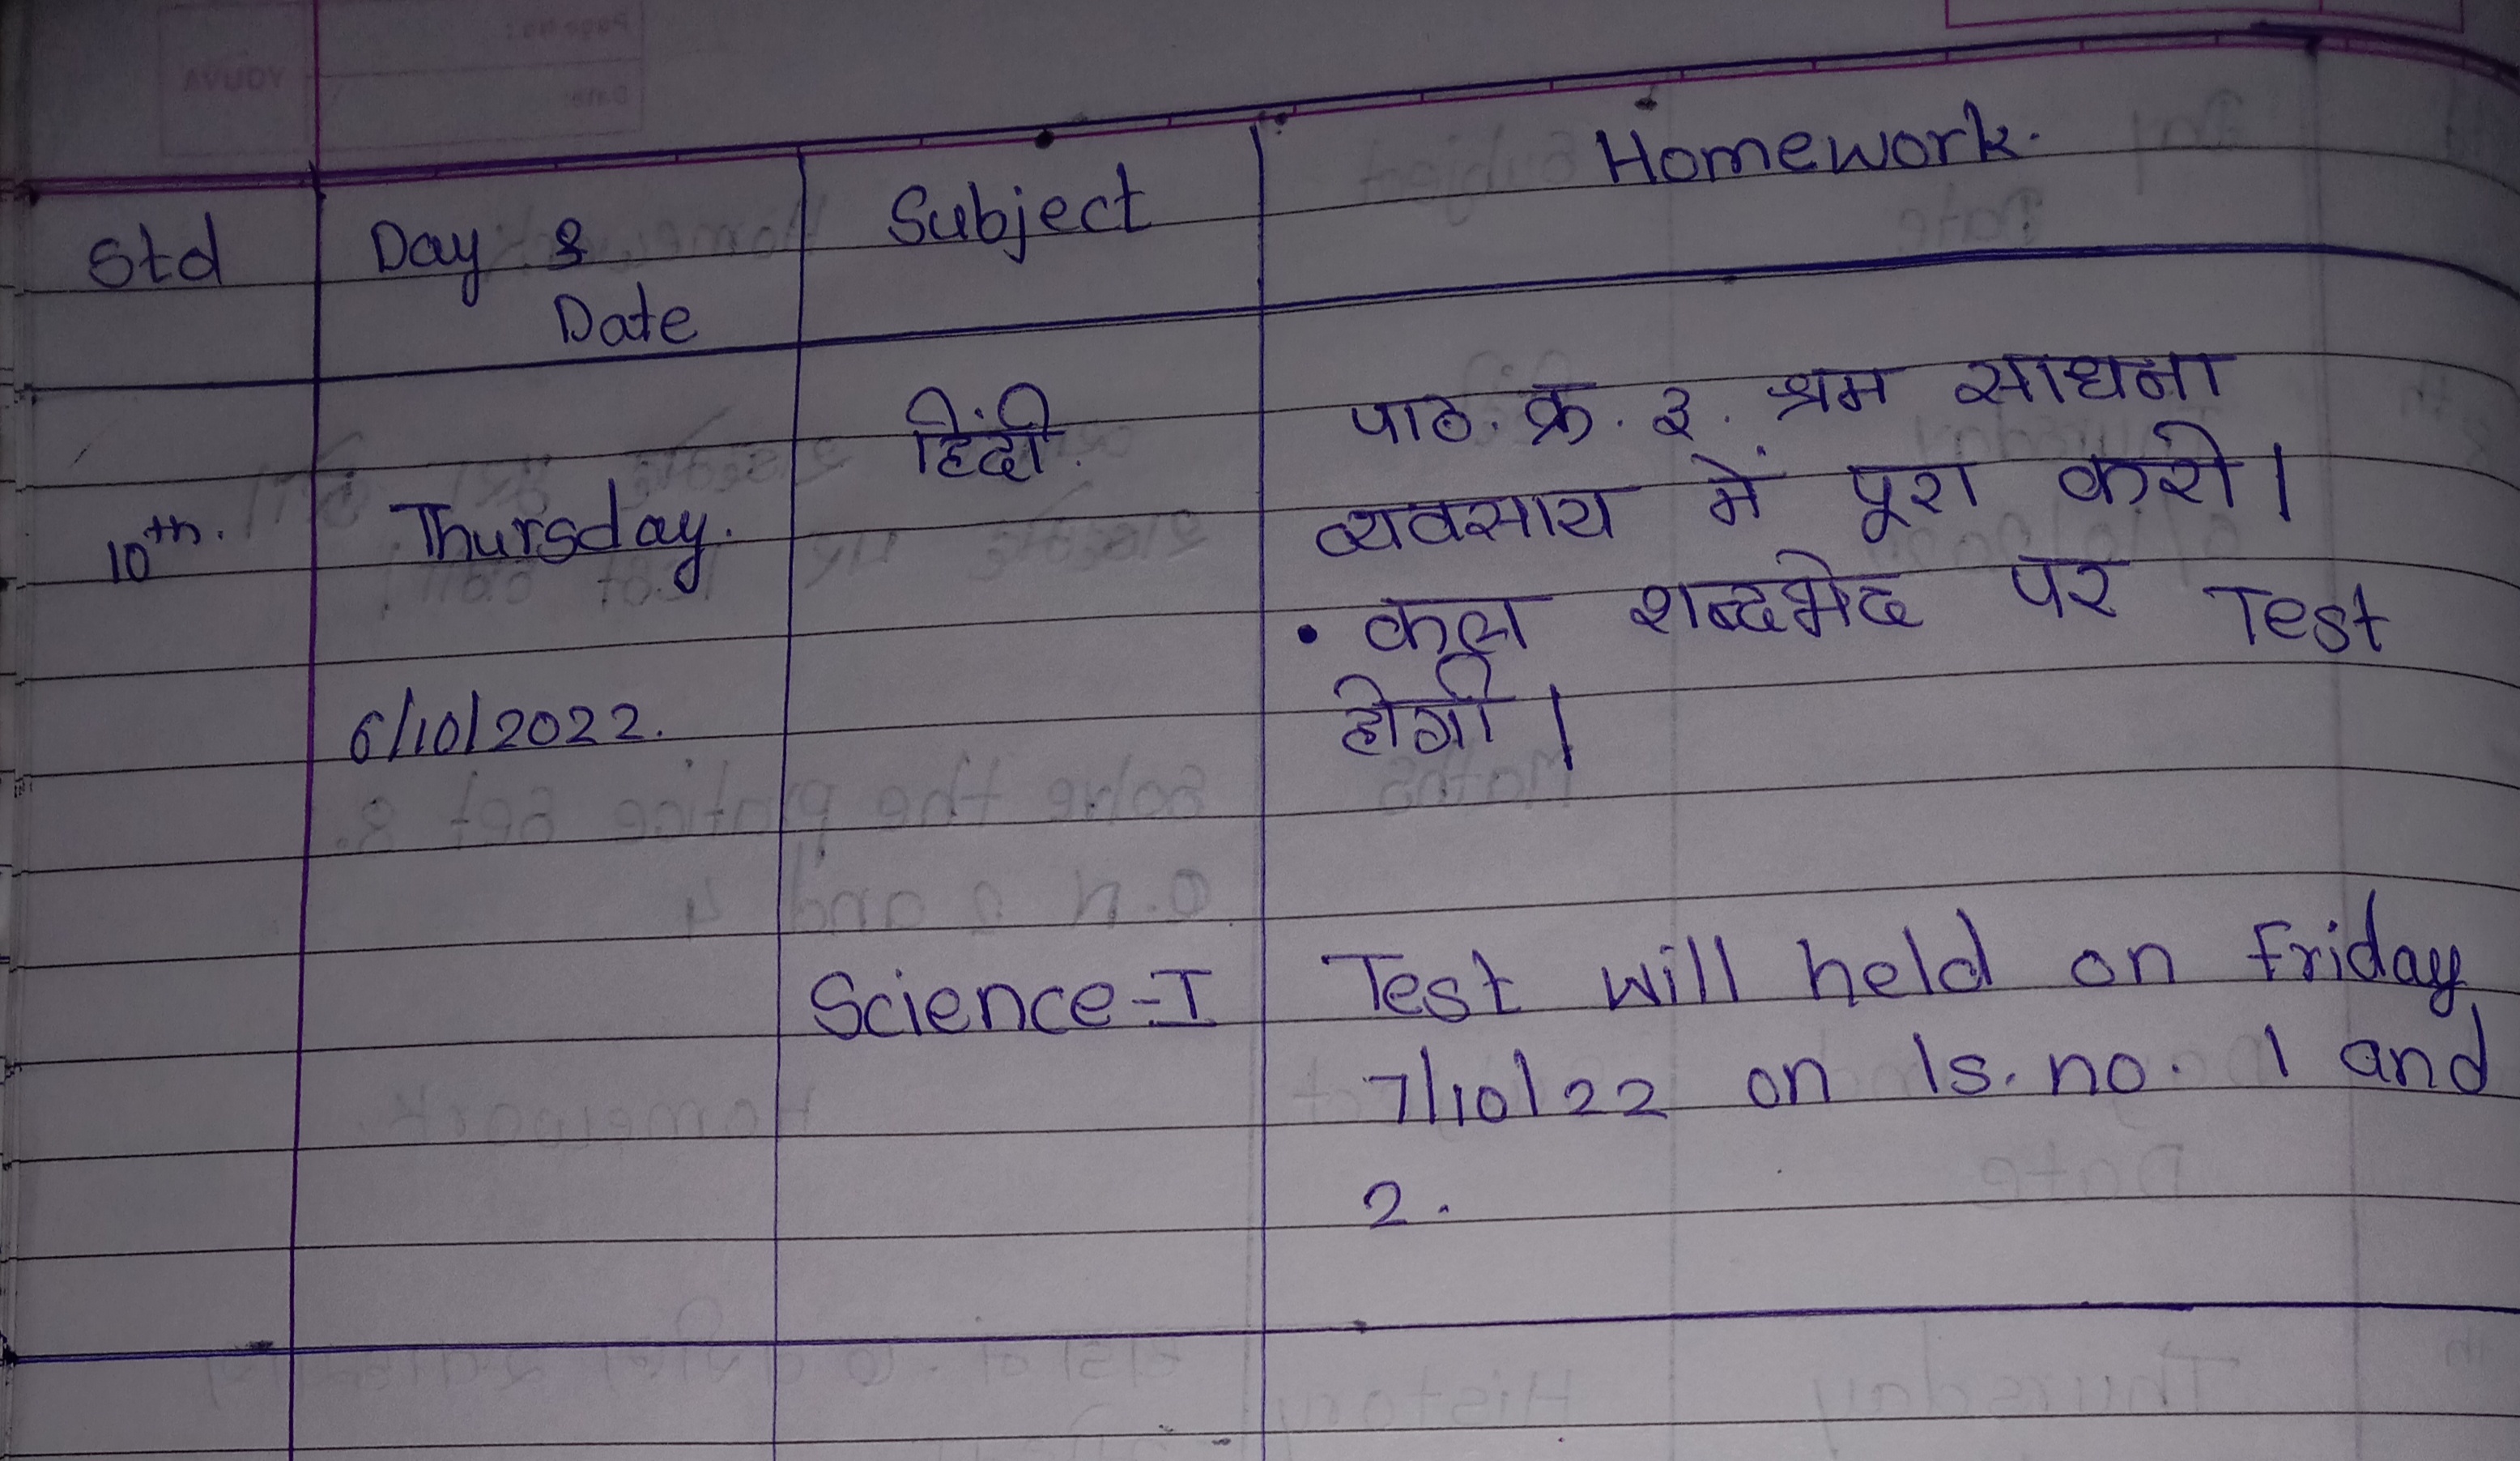 Std
Day &
Date
Subject
Homework.
10th.
Thursday.
6/10/2022.
हिंदी.
पाठ. क्र. ३. श्रम साधना
व्यवसाय में पूरा करो।
• कल शब्दभेद पर Test
होगी।
Science-I
Test will held on Friday
7/10/22 on ls. no. 1 and
2.